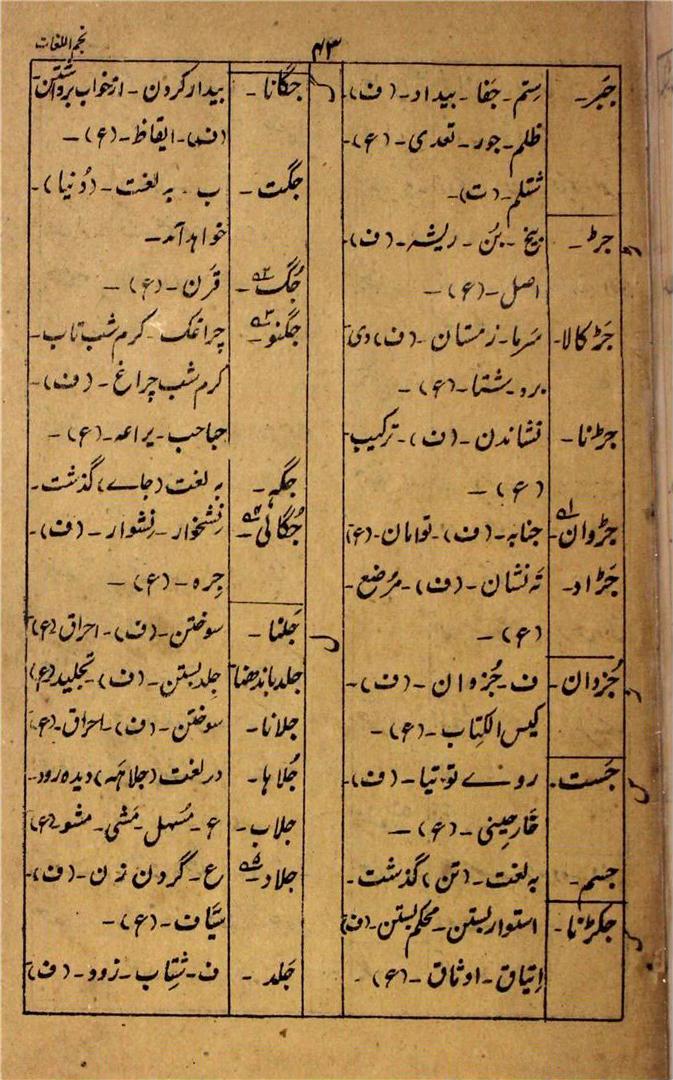 نجم اللغات
۴۳
جَبر۔ سِتم۔ جَفا۔ بیداد۔ (ف)۔
ظلم۔ جور۔ تعدی۔ (ع)۔
شتلم۔ (ت)۔
جڑ۔ بیخ۔ بُن۔ ریشہ۔ (ف)۔
اصل۔ (ع)۔
جَڑکالا۔ سَرما۔ زمستان۔ (ف) دی
برد۔ شتا۔ (ع)۔
جڑنا۔ نشاندن۔ (ف)۔ ترکیب
(ع)۔
جڑوان۔ جنابہ۔ (ف)۔ توامان۔ (ع)
جَڑاد۔ تہ نشان۔ (ف)۔ مرضع۔
(ع)۔
جُزدان۔ ف۔ جُزدان۔ (ف)۔
کیس الکِتاب۔ (ع)۔
جَست۔ روے توتیا۔ (ف)۔
خارچینی۔ (ع)۔
جسم۔ بہ لغت۔ (تن) گذشت۔
جکڑنا۔ استوار بستن۔ محکم بستن۔ (ف)
اِیثاق۔ اوثاق۔ (ع)۔
جگانا۔ بیدار کردن۔ از خواب برداشتن۔
(ف)۔ ایقاظ۔ (ع)۔
جگت۔ ب۔ بہ لغت۔ (دُنیا)۔
خواہد آمد۔
جُگ۔ قَرن۔ (ع)۔
جگنو۔ چراغک۔ کرم شب تاب۔
کرم شب چراغ۔ (ف)۔
حباحب۔ یراعہ۔ (ع)۔
جگہ۔ بہ لغت (جاے) گذشت۔
جُگالی۔ نشخوار۔ نشوار۔ (ف)۔
جِرہ۔ (ع)۔
جَلنا۔ سوختن۔ (ف)۔ احراق (ع)
جلد باندھنا جِلد بستن۔ (ف)۔ تجلید (ع)
جلانا۔ سوختن۔ (ف)۔ احراق۔ (ع)
جُلاہا۔ در لغت (جلاہہ) دیدہ رود۔
جلاب۔ ع۔ مُسہل۔ مَشی۔ مشو۔ (ع)
جلاد۔ ع۔ گردن زن۔ (ف)۔
سَیّاف۔ (ع)۔
جَلد۔ ف۔ شِتاب۔ زود۔ (ف)